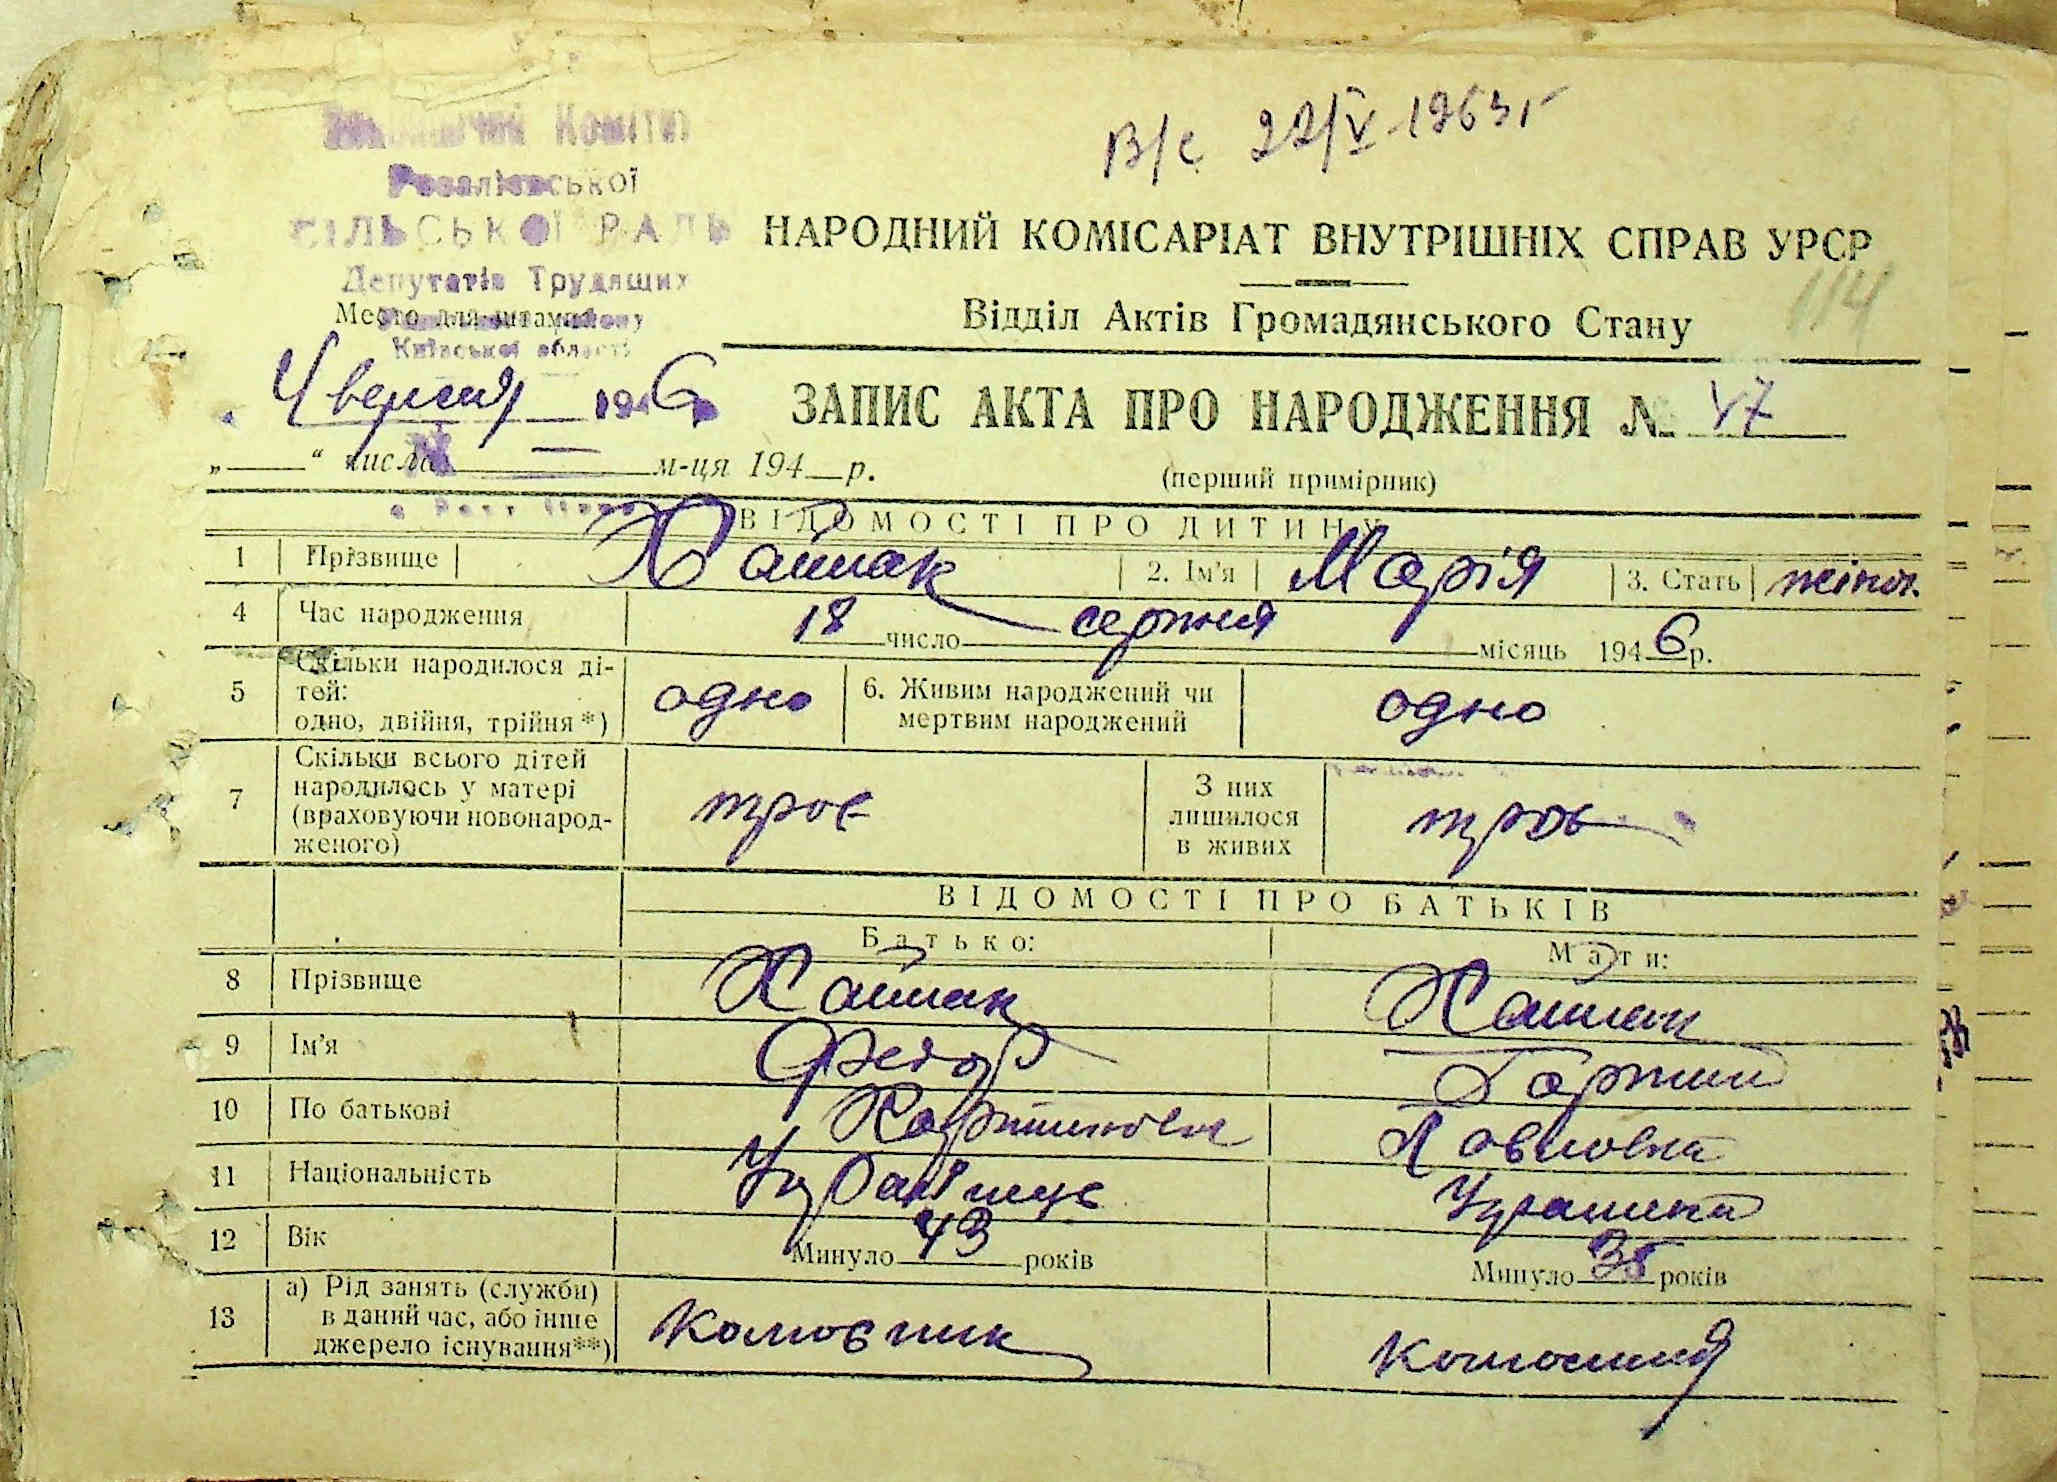 В/с 22/V-1963г
Комітет
Розаліївської
СІЛЬСЬКОЇ РАДИ
Депутатів Трудящих
Место для штампа
району
Київської області
НАРОДНИЙ КОМІСАРІАТ ВНУТРІШНІХ СПРАВ УРСР
114
Відділ Актів Громадянського Стану
1946
ЗАПИС АКТА ПРО НАРОДЖЕННЯ № 47
„ “ числа м-ця 194 р.
(перший примірник)
ВІДОМОСТІ ПРО ДИТИНУ
1 Прізвище 2. Ім'я Марія 3. Стать жіноч.
4 Час народження 18 число серпня місяць 1946 р.
5 Скільки народилося ді-
тей:
одно, двійня, трійня *) одно 6. Живим народжений чи
мертвим народжений одно
7 Скільки всього дітей
народилось у матері
(враховуючи новонарод-
женого) троє З них
лишилося
в живих троє
ВІДОМОСТІ ПРО БАТЬКІВ
Батько: Мати:
8 Прізвище
9 Ім'я Федор
10 По батькові Павловна
11 Національність Українець Українка
12 Вік Минуло 43 років Минуло 35 років
13 а) Рід занять (служби)
в даний час, або інше
джерело існування**)